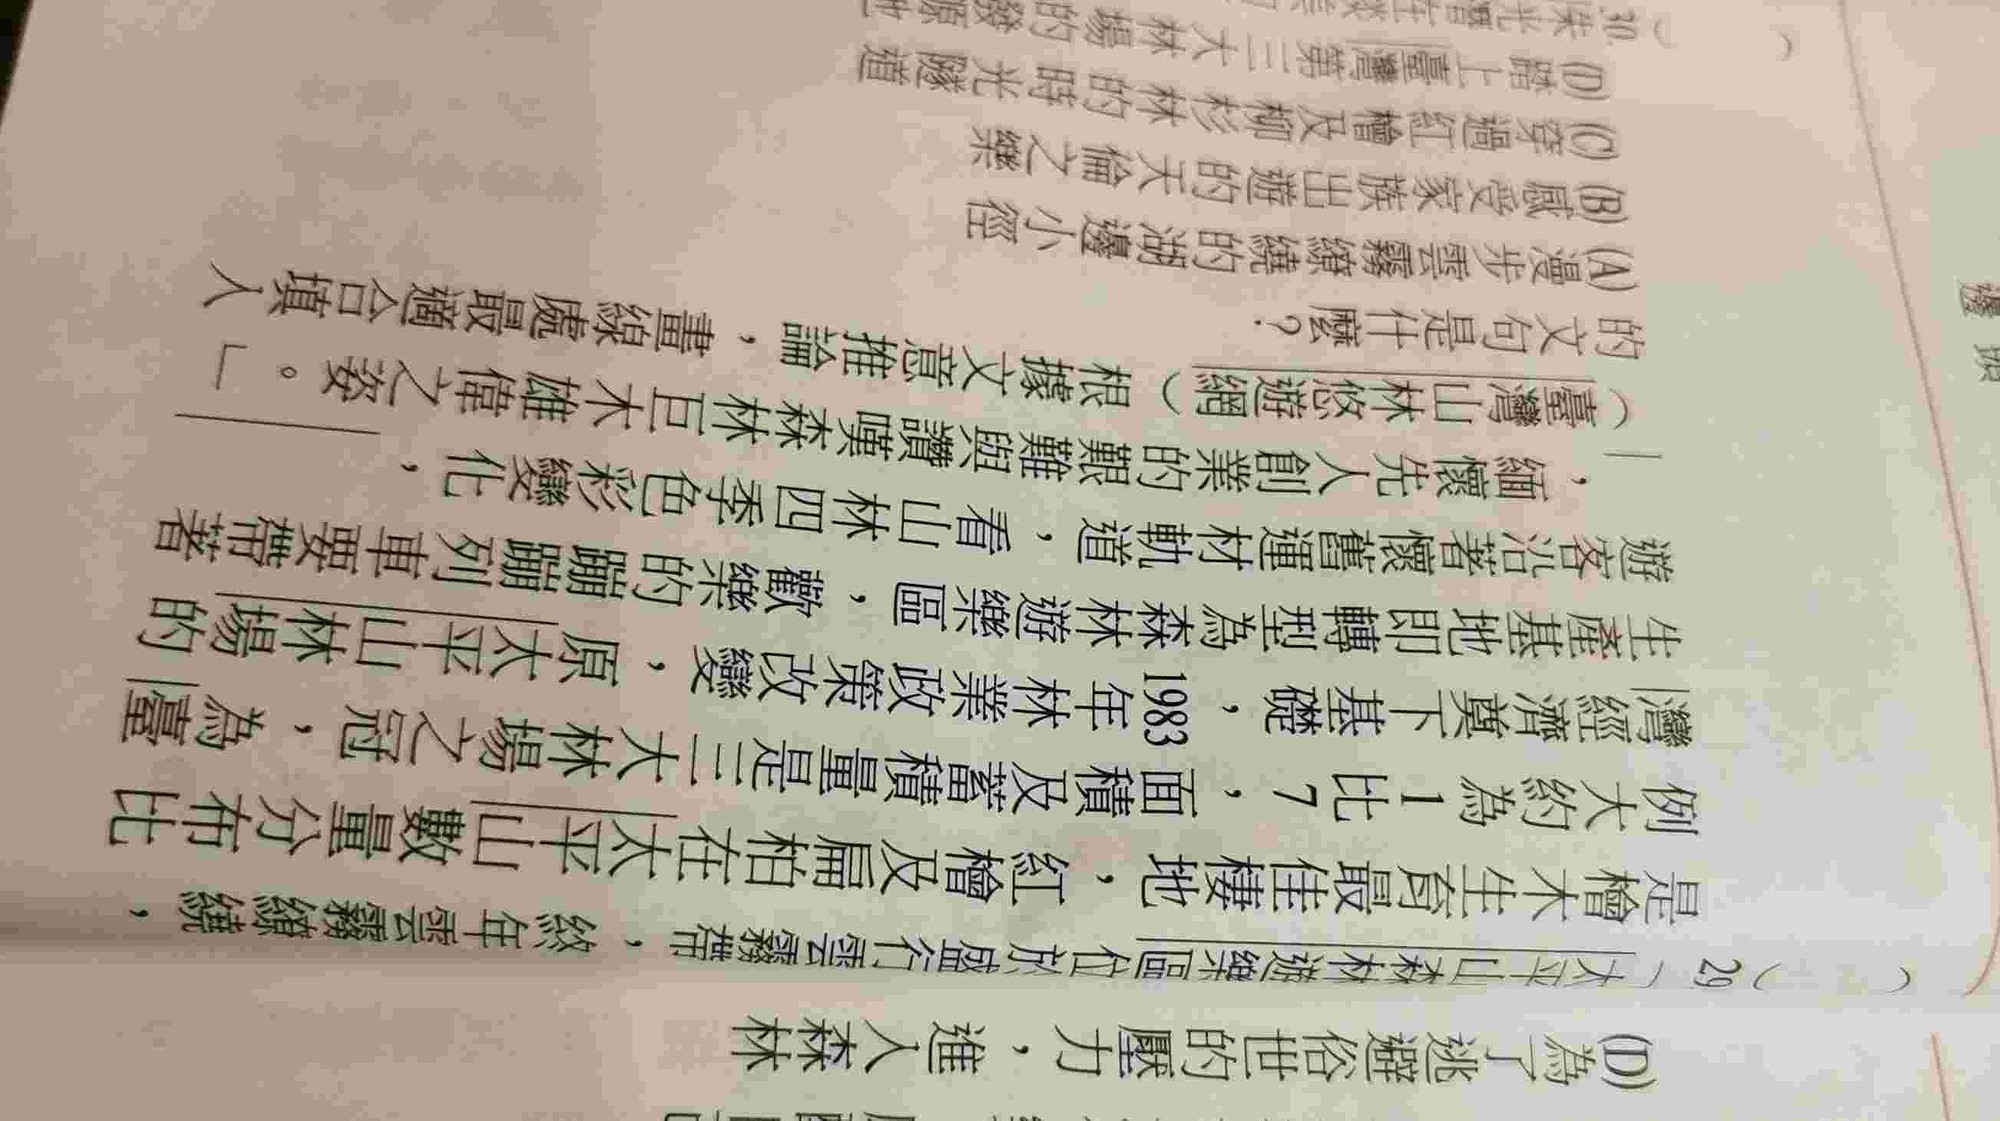 (D)為了逃避俗世的壓力，進入森林
(　)29.「太平山森林遊樂區位於盛行雲霧帶，終年雲霧繚繞，
是檜木生育最佳棲地，紅檜及扁柏在太平山數量分布比
例大約為1比7，面積及蓄積量是三大林場之冠，為臺
灣經濟奠下基礎，1983年林業政策改變，原太平山林場的
生產基地即轉型為森林遊樂區，歡樂的蹦蹦列車要帶著
遊客沿著懷舊運材軌道，看山林四季色彩變化，
，緬懷先人創業的艱難與讚嘆森林巨木雄偉之姿。」
（臺灣山林悠遊網）根據文意推論，畫線處最適合填入
的文句是什麼？
(A)漫步雲霧繚繞的湖邊小徑
(B)感受家族出遊的天倫之樂
(C)穿過紅檜及柳杉林的時光隧道
(D)踏上臺灣第三大林場的發源地
(　)30.